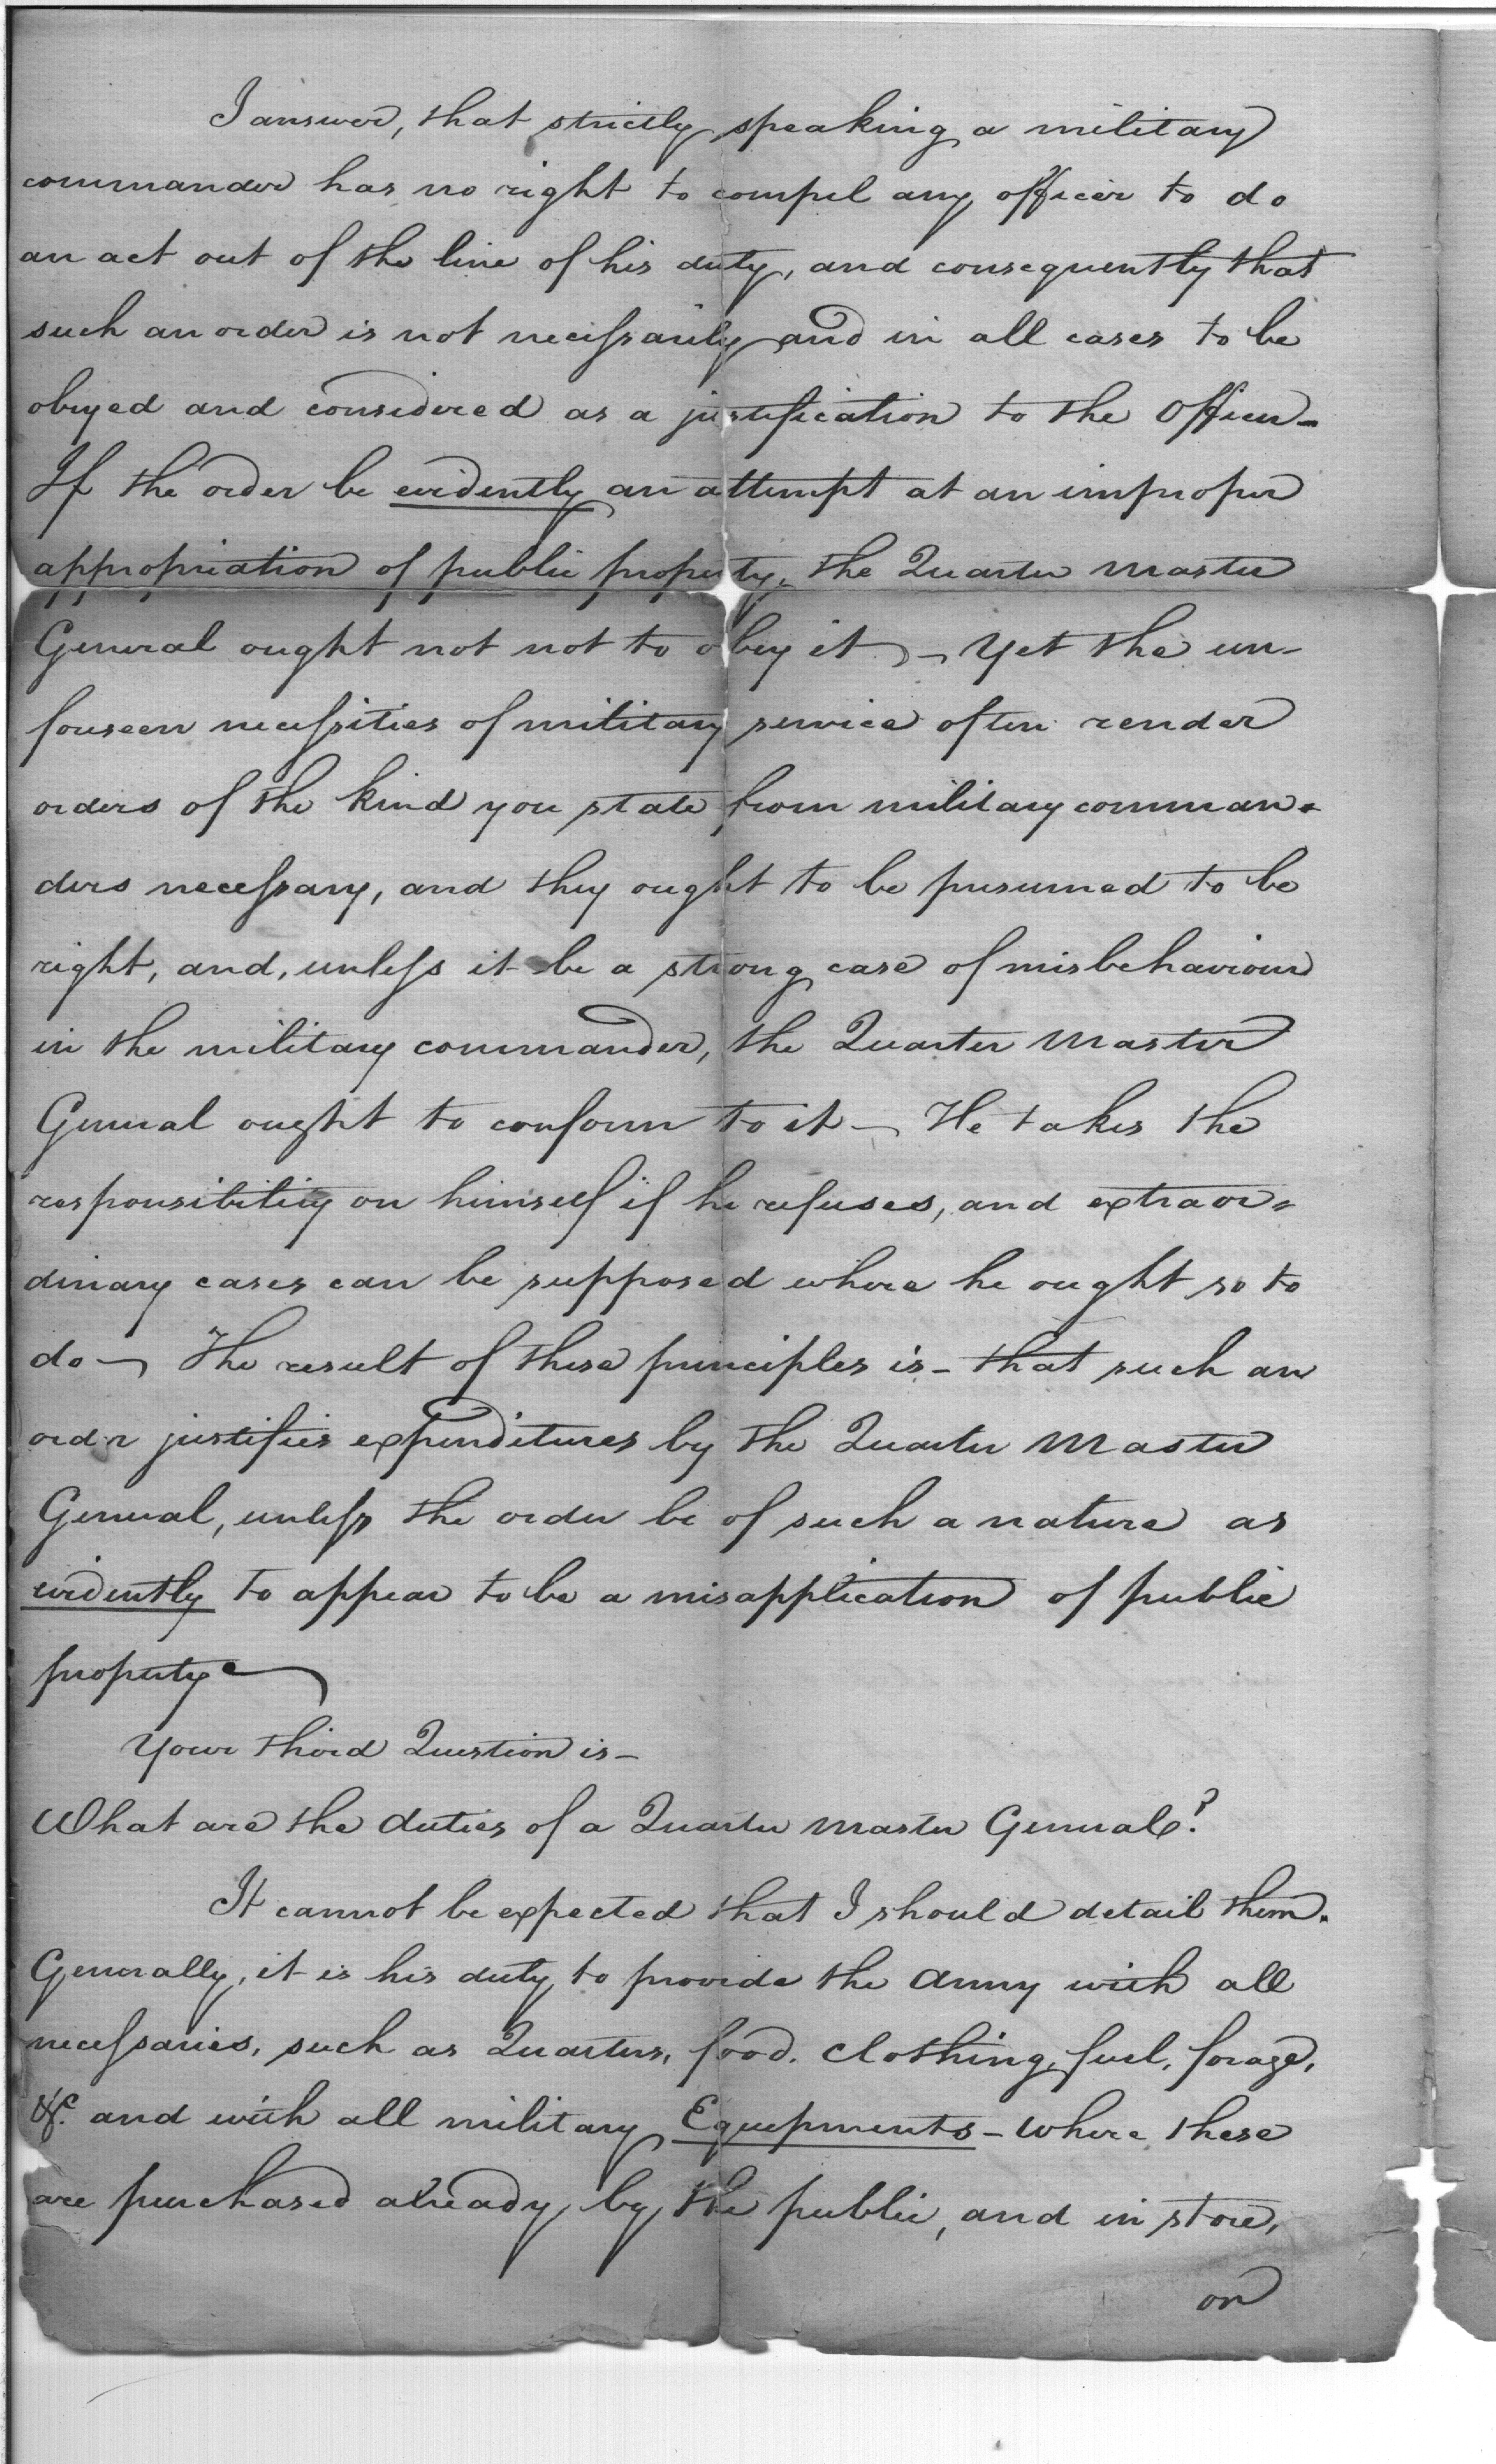 I answer, that strictly speaking a military
commander has no right to compel any officer to do
an act out of the line of his duty, and consequently that
such an order is not necessarily and in all cases to be
obeyed and considered as a justification to the Officer-
If the order be evidently an attempt at an improper
appropriation of public property, the Quarter Master
General ought not not to obey it - Yet the un-
foreseen necessities of military service often render
orders of the kind you state from military comman-
ders necessary, and they ought to be presumed to be
right, and, unless it be a strong case of misbehaviour
in the military commander, the Quarter Master
General ought to conform to it - He takes the
responsibility on himself if he refuses, and extraor-
dinary cases can be supposed where he ought so to
do - The result of these principles is - that such an
order justifies expenditures by the Quarter Master
General, unless the order be of such a nature as
evidently to appear to be a misapplication of public
property -
Your third Question is -
What are the duties of a Quarter Master General?
It cannot be expected that I should detail them.
Generally, it is his duty to provide the Army with all
necessaries, such as Quarters, food, clothing, fuel, forage,
&c. and with all military Equipments - Where these
are purchased already by the public, and in store,
or